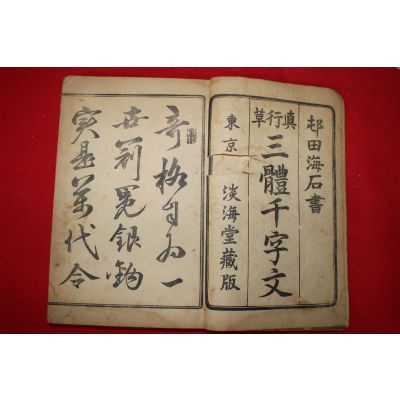 邨田海石書
真行草
三體千字文
東京 淡海堂藏版
奇格自為一
世冠冕銀鈎
実是萬代令